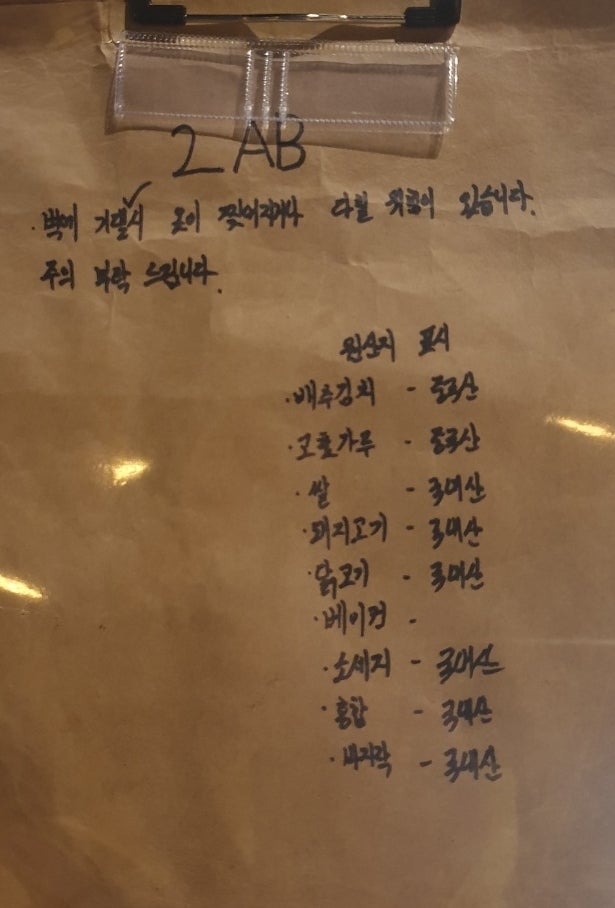 2 AB
· 벽에 기댈시 옷이 찢어지거나 다칠 위험이 있습니다.
주의 부탁 드립니다.
원산지 표시
· 배추김치 - 중국산
· 고춧가루 - 중국산
· 쌀 - 국내산
· 돼지고기 - 국내산
· 닭고기 - 국내산
· 베이컨 -
· 소세지 - 국내산
· 홍합 - 국내산
· 바지락 - 국내산